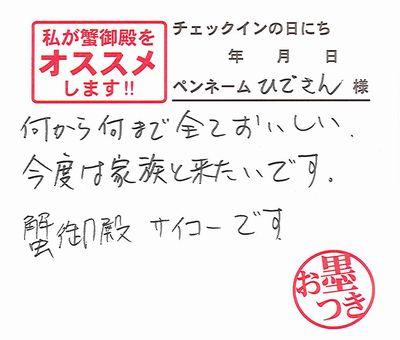 私が蟹御殿を
オススメ
します!!
チェックインの日にち
年 月 日
ペンネーム ひでさん 様
何から何まで全ておいしい.
今度は家族と来たいです.
蟹御殿 サイコーです
お墨つき